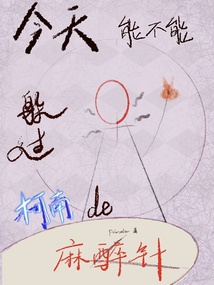 今天
能不能
躲过
柯南de
麻醉针